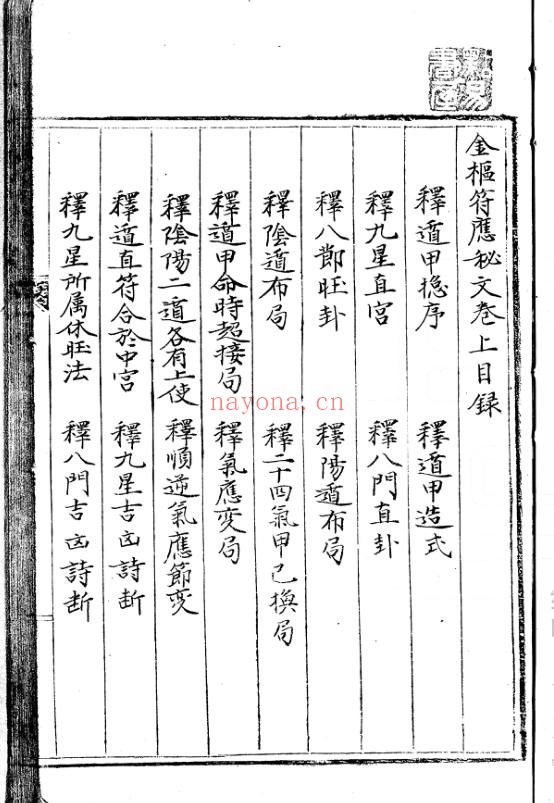 金樞符應秘文卷上目録
釋遁甲揔序　釋遁甲造式
釋九星直宮　釋八門直卦
釋八節旺卦　釋陽遁布局
釋陰遁布局　釋二十四氣甲己換局
釋遁甲命時超接局　釋氣應変局
釋陰陽二遁各有上使　釋順逆氣應節変
釋遁直符合於中宮　釋九星吉凶詩断
釋九星所属休旺法　釋八門吉凶詩断
nayona.cn